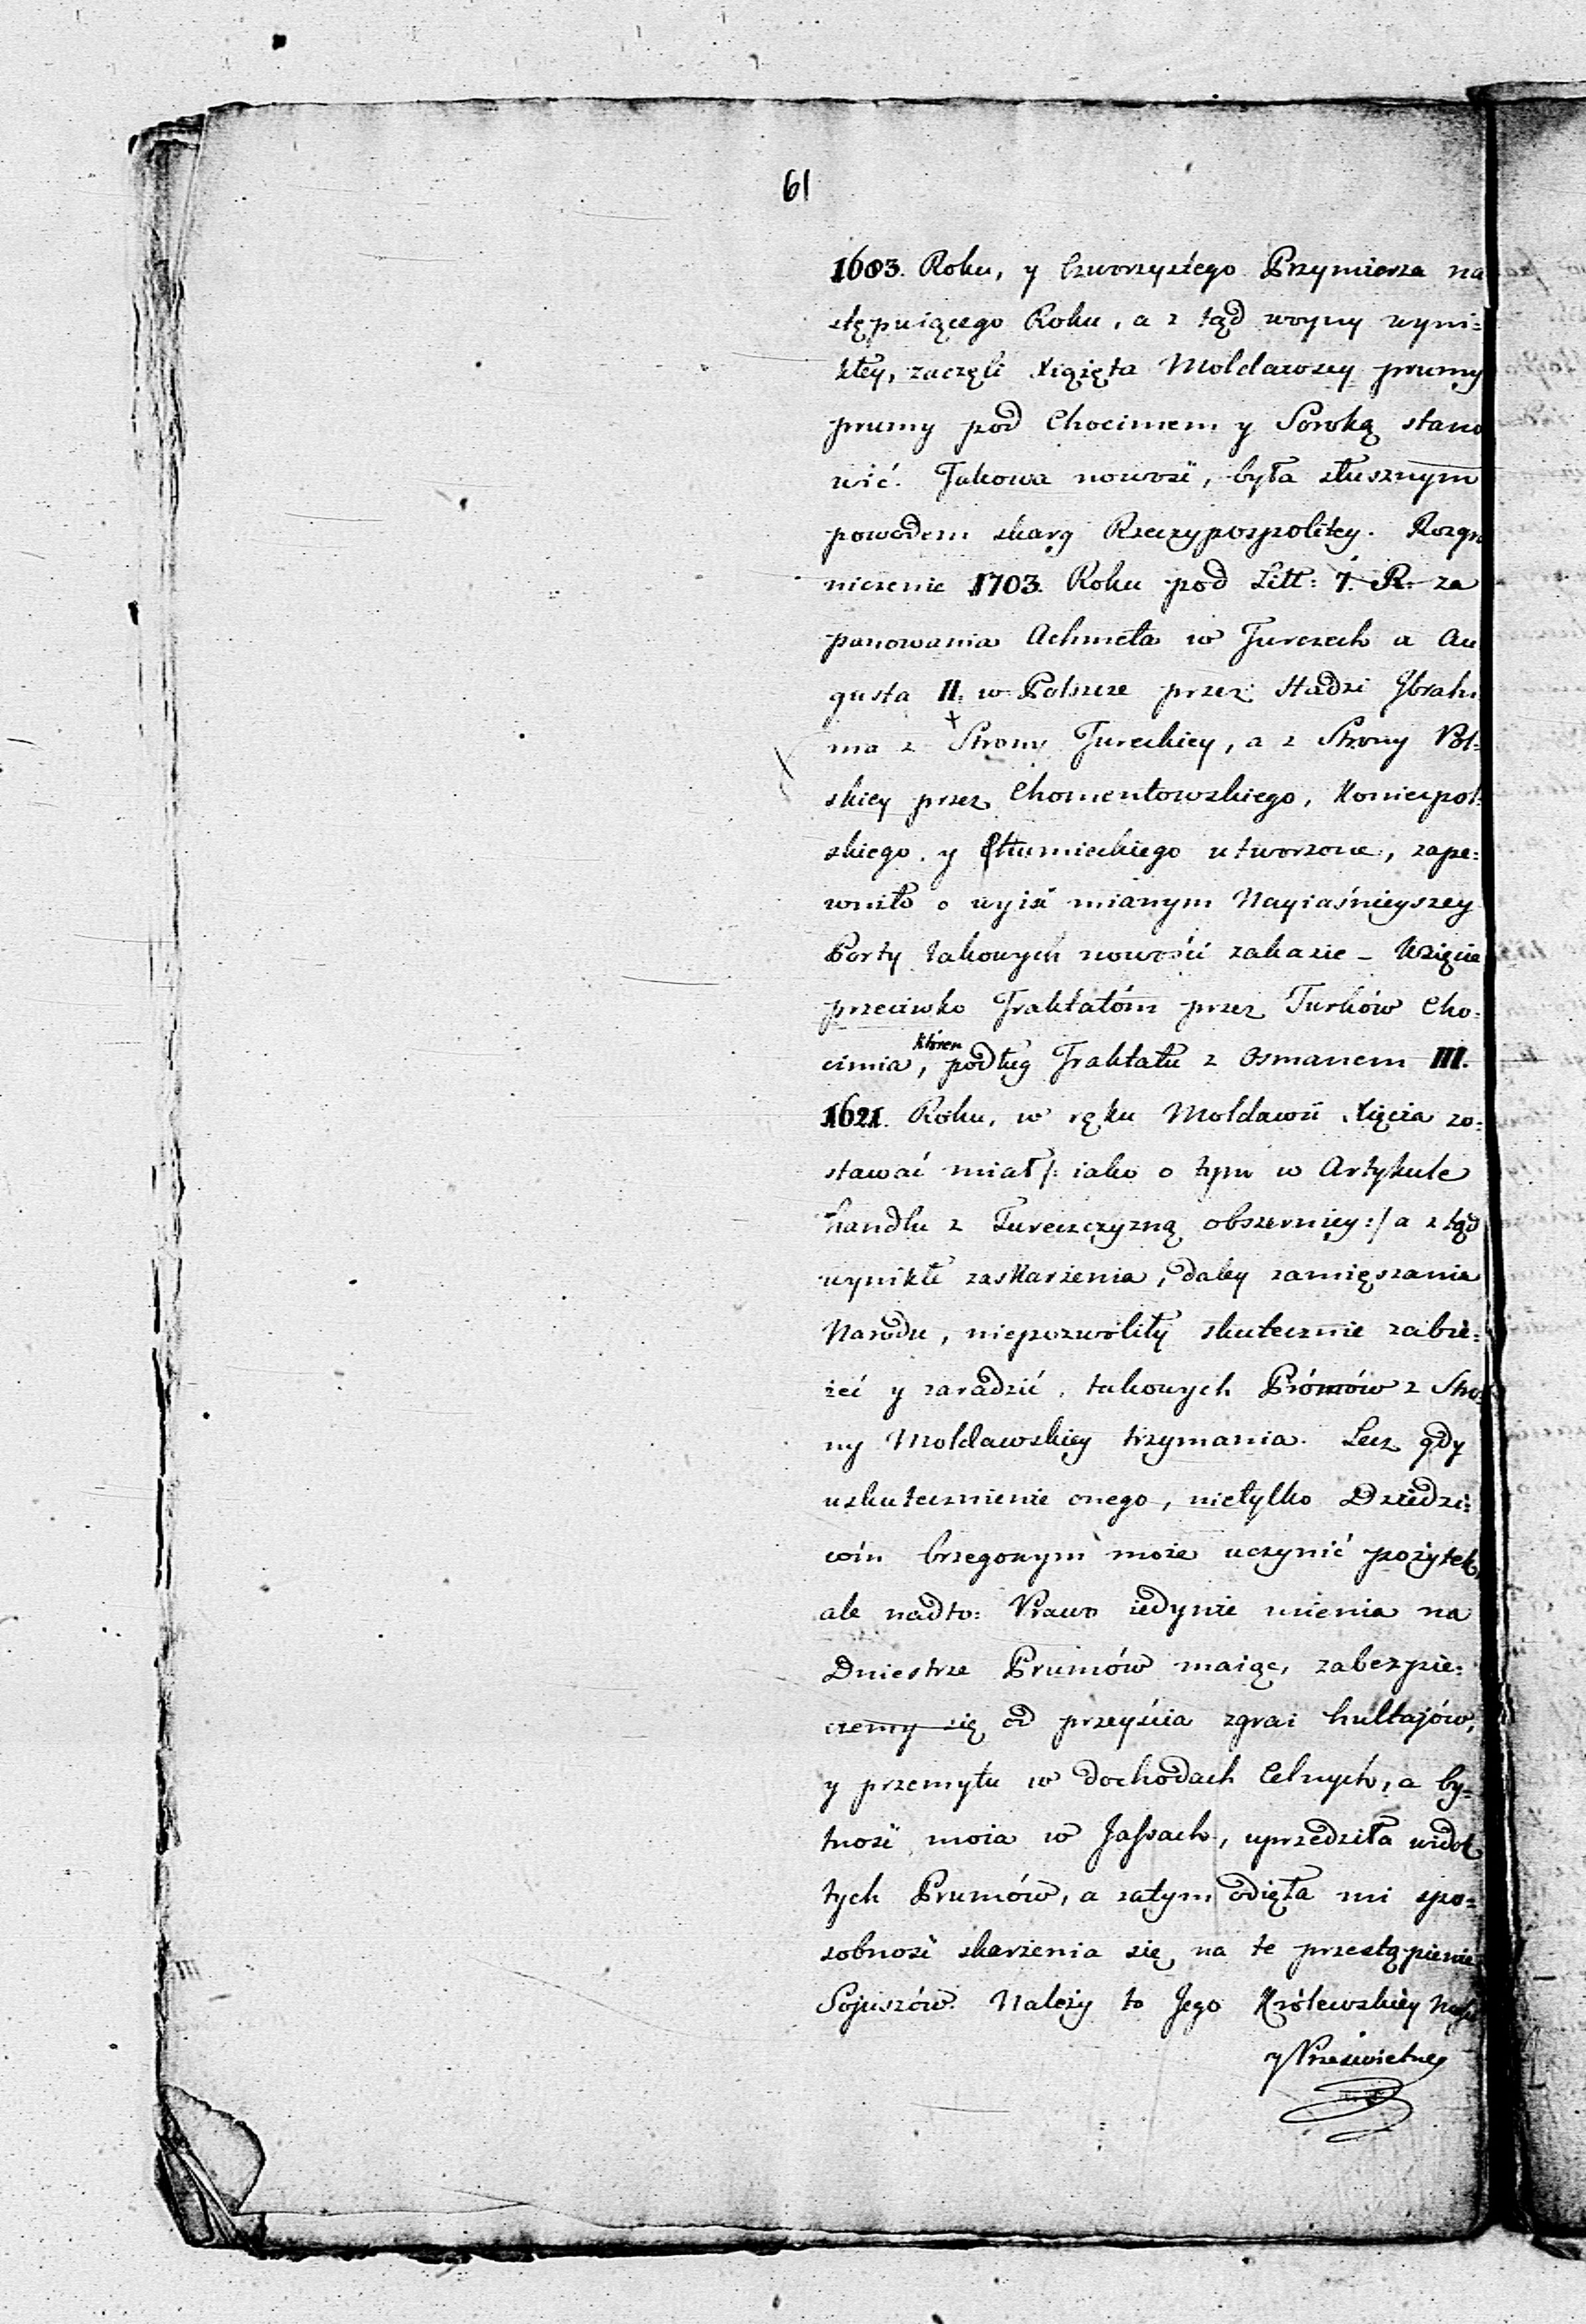 61
1683. Roku, y Czworzystego Przymierza na
stępuiącego Roku, a z tąd woyny wyni=
kłey, zaczęli Xiążęta Moldawscy prumy
prumy pod Chocimem y Soroką stano
wić. Takowa nowość, była słusznym
powodem skarg Rzeczypospolitey. Rozgra
niczenie 1703. Roku pod Litt: 7. R. za
panowania Achmeta w Turczech a Au
gusta II. w Polszcze przez Hadzi Ibrahi
ma z Strony Tureckiey, a z Strony Pol=
skiey przez Chomentowskiego, Koniecpol=
skiego y Rzumieckiego utworzone, zape=
wniło o wyiść mianym Nayiaśnieyszey
Porty takowych nowości zakazie – Wzięcie
przeciwko Traktatóm przez Turków Cho=
cimia, któren podług Traktatu z Osmanem III.
1621. Roku, w ręku Moldawii Xięcia zo=
stawać miał /: iako o tym w Artykule
handlu z Turecczyzną obszerniey :/ a z tąd
wynikłe zaskarżenia, daley zamięszania
Narodu, niepozwoliły skutecznie zabie=
żeć y zaradzić, takowych Prómów z Stro
ny Moldawskiey trzymania. Lecz gdy
uskutecznienie onego, nietylko Dziedzi=
cóm brzegowym może uczynić pożytek,
ale nadto: Prawo iedynie mienia na
Dniestrze Prumów maiąc, zabezpie=
czemy się od przeyścia zgrai hultajów,
y przemytu w dochodach Celnych, a by=
tność moia w Jassach, uprzedziła widok
tych Prumów, a zatym odięła mi spo=
sobność skarżenia się na te przestąpienie
Sojuszów. Należy to Jego Królewskiey
y Prześwietney